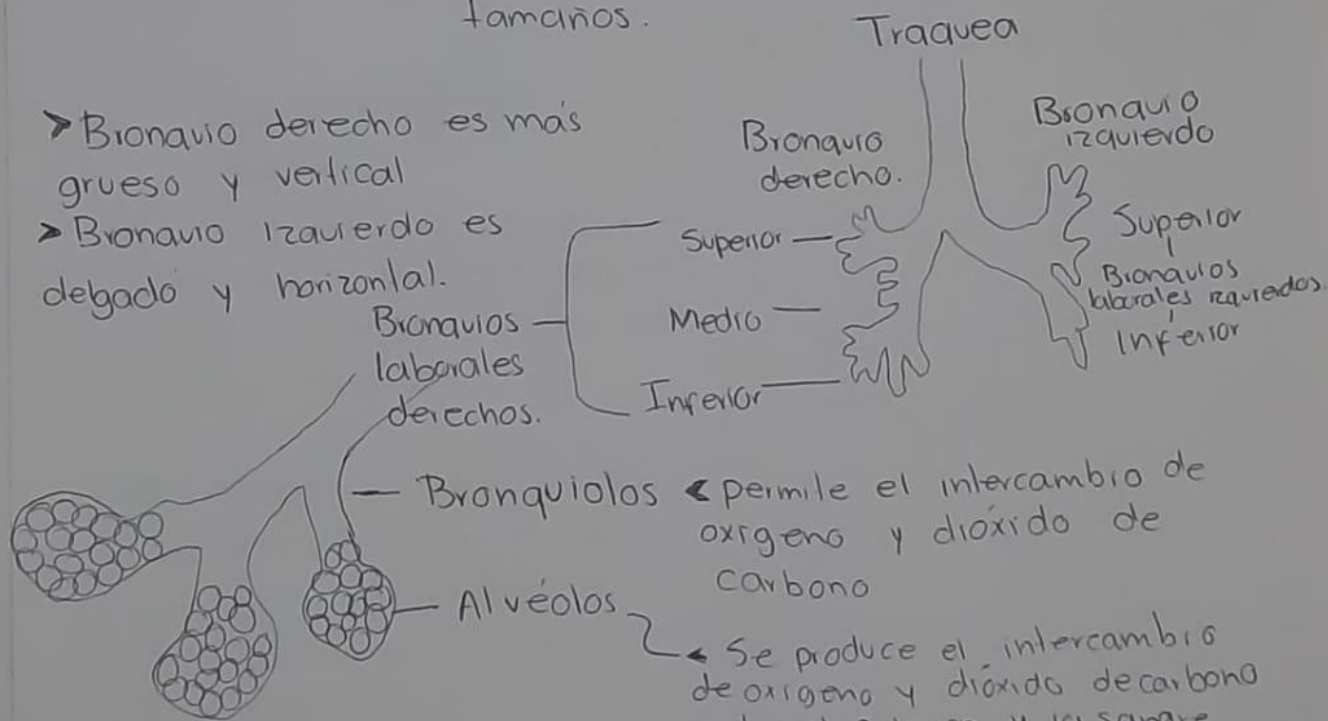 tamaños.
Traquea
> Bronquio derecho es más
grueso y vertical
> Bronquio izquierdo es
delgado y horizontal.
Bronquio
derecho.
Bronquio
izquierdo
Superior
Medio
Inferior
Superior
Bronquios
laborales izquierdos.
Inferior
Bronquios
laborales
derechos.
Bronquiolos < permite el intercambio de
oxígeno y dióxido de
carbono
Alvéolos
< Se produce el intercambio
de oxígeno y dióxido de carbono
y la sangre